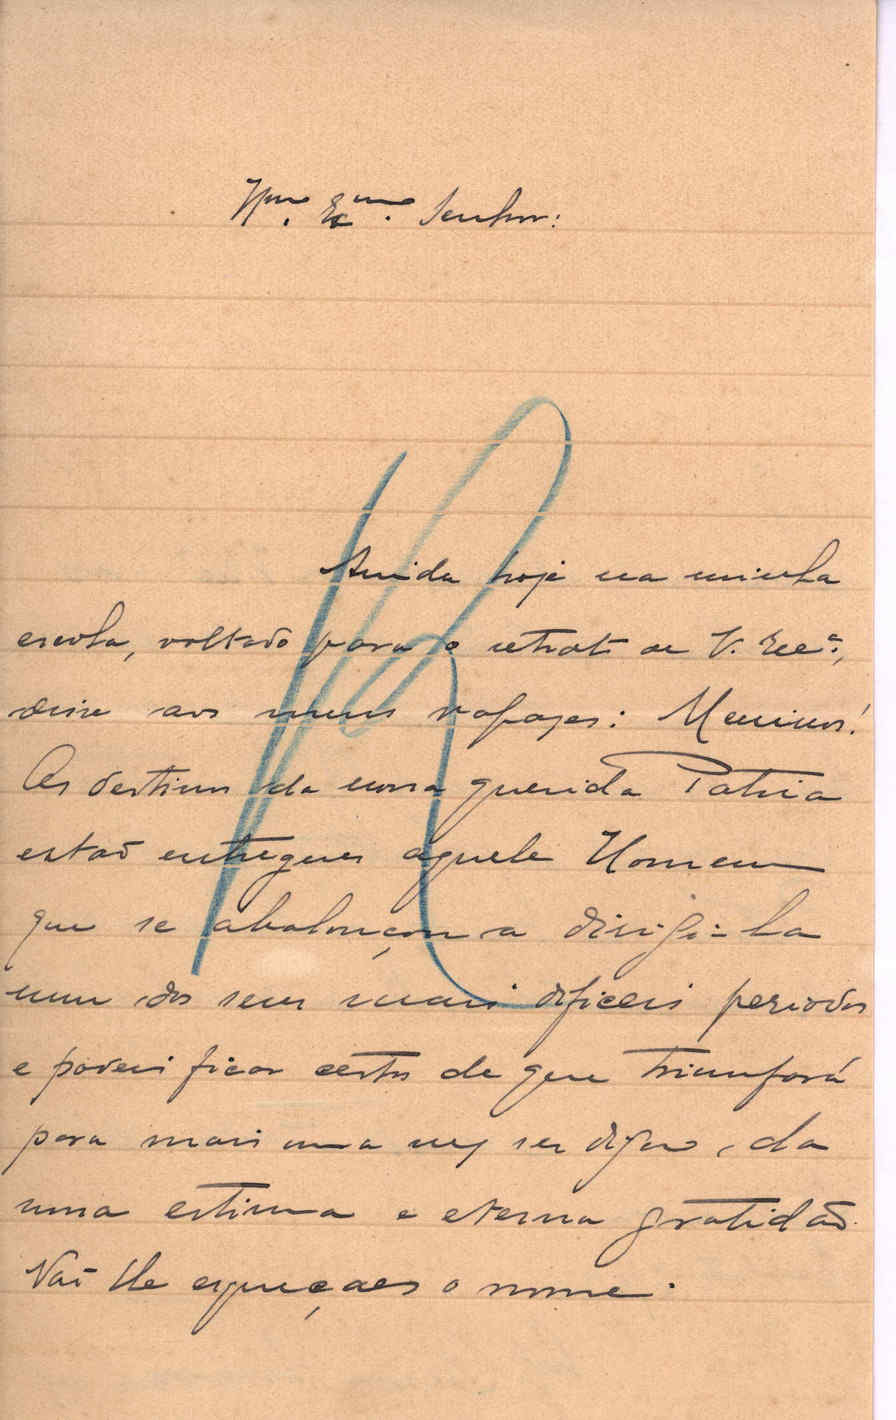 Ilmo. Exmo. Senhor:
Ainda hoje na minha
escola, voltado para o retrato de V. Excª.,
disse aos meus rapazes: Meninos!
Os destinos da nossa querida Patria
estaõ entregues aquele Homem
que se abalonçou a dirigi-la
num dos seus mais dificeis periodos
e podeis ficar certos de que triunfará
para mais uma vez ser digno da
nossa estima e eterna gratidaõ.
Naõ lhe esqueçaes o nome.